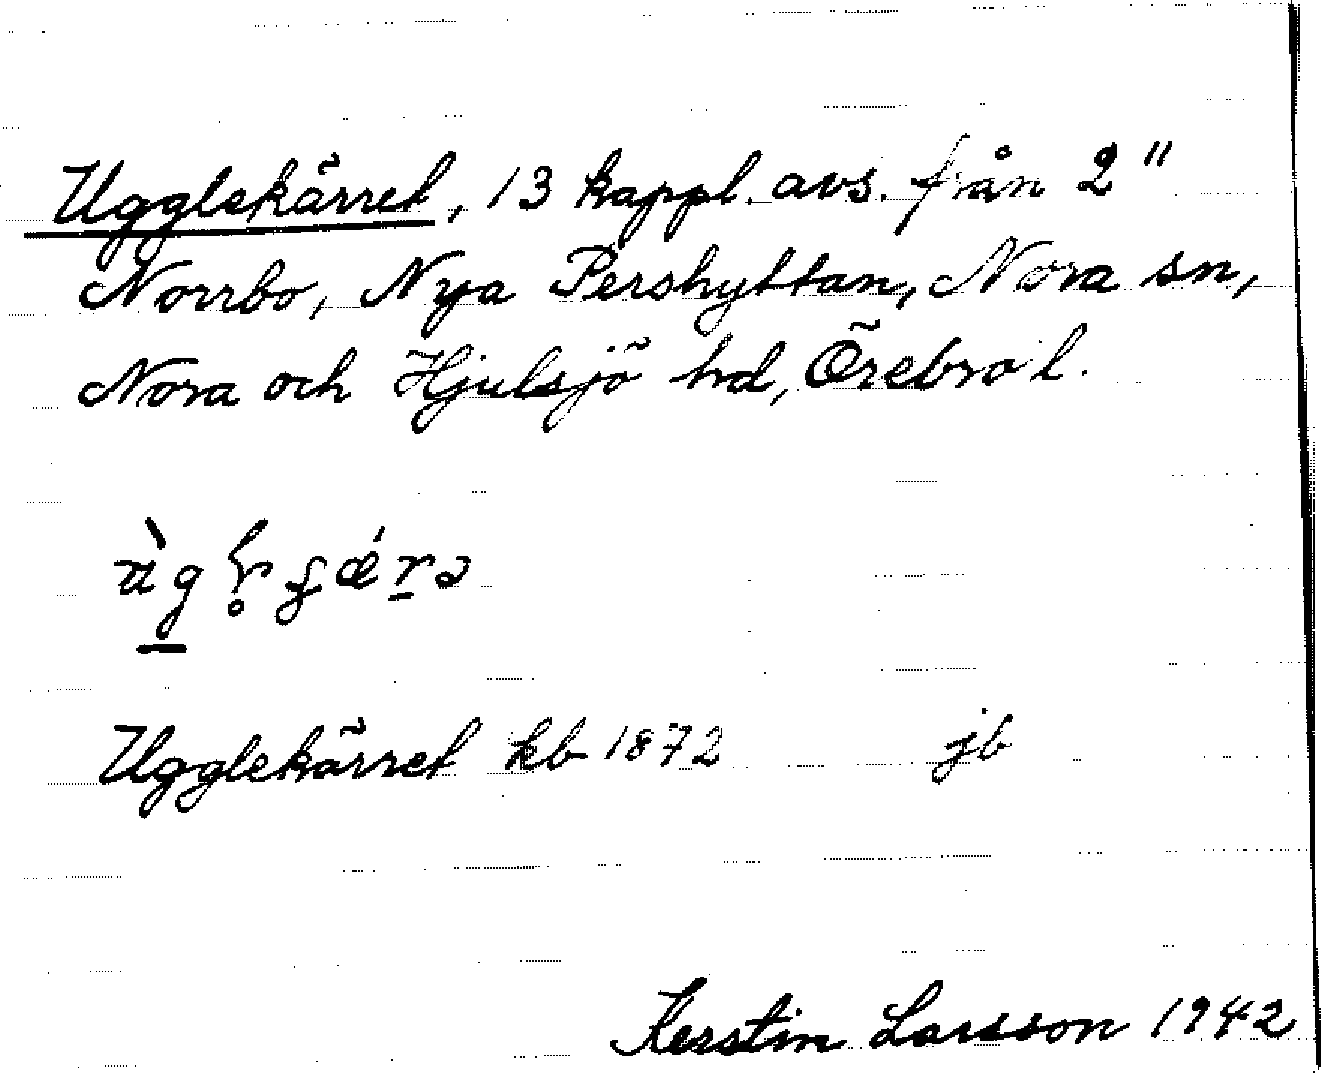 Ugglekärret, 13 kappl. avs. från 2"
Norrbo, Nya Pershyttan, Nora sn,
Nora och Hjulsjö hd, Örebro l.
Ugglekärret kb 1872 jb
Kerstin Larsson 1942